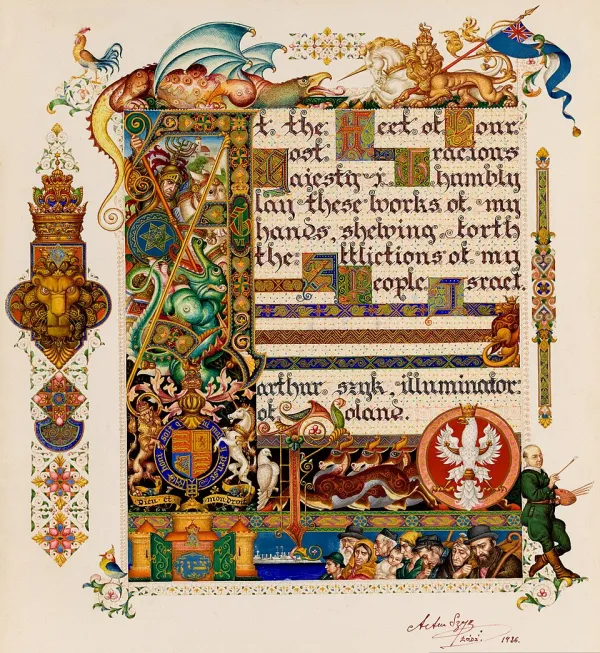 At the Feet of Your
Most Gracious
Majesty i humbly
lay these works of my
hands, shewing forth
the Afflictions of my
People Israel.
arthur szyk, illuminator
of Poland.
Dieu et mon droit
ציון
Arthur Szyk
Łódź. 1936.